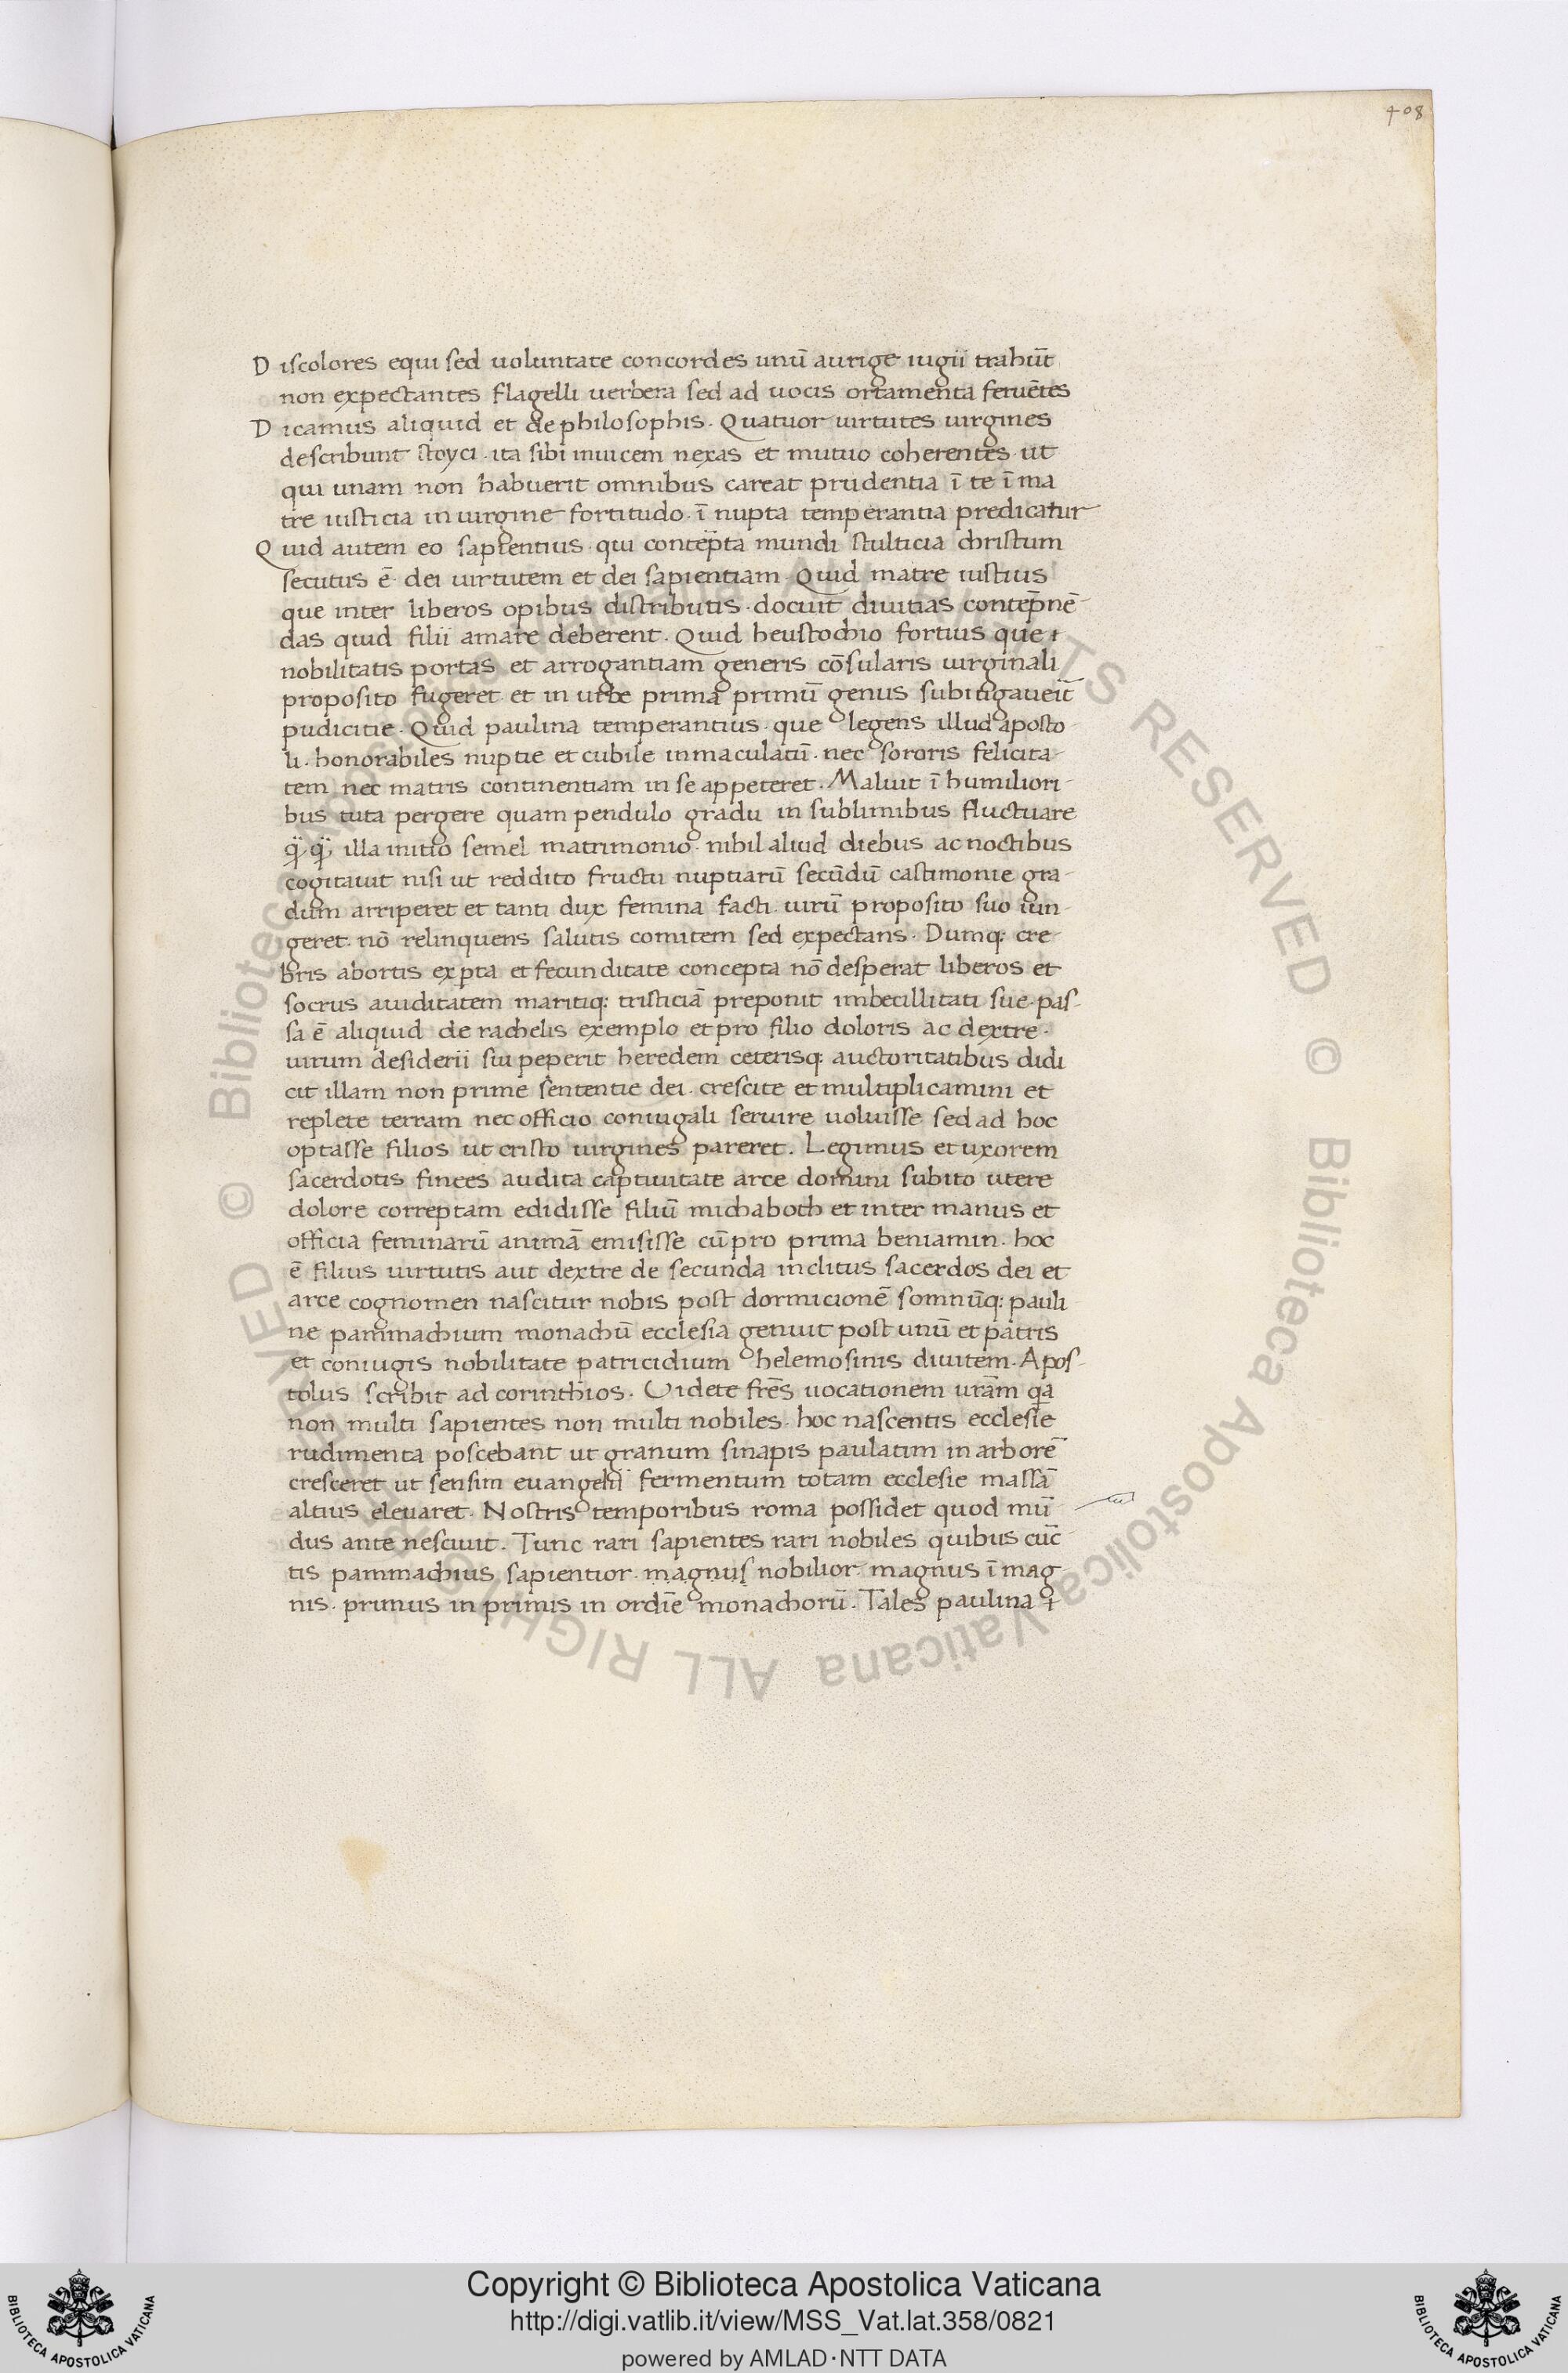 408
Discolores equi sed uoluntate concordes unū aurige iugū trahūt
non expectantes flagelli uerbera sed ad uocis ortamenta feruētes
Dicamus aliquid et de philosophis. Quatuor uirtutes uirgines
describunt stoyci. ita sibi inuicem nexas et mutuo coherentes ut
qui unam non habuerit omnibus careat prudentia ī te ī ma
tre iusticia in uirgine fortitudo. ī nupta temperantia predicatur
Quid autem eo sapientius. qui contēpta mundi stulticia christum
secutus ē dei uirtutem et dei sapientiam. Quid matre iustius
que inter liberos opibus distributis. docuit diuitias contēpnē-
das quid filii amare deberent. Quid heustochio fortius que
nobilitatis portas et arrogantiam generis cōsularis uirginali
proposito fugeret et in urbe prima primū genus subiugaueīt
pudicitie. Quid paulina temperantius. que legens illud aposto
li. honorabiles nuptie et cubile inmaculatū. nec sororis felicita-
tem nec matris continentiam in se appeteret. Maluit ī humiliori-
bus tuta pergere quam pendulo gradu in sublimibus fluctuare
illa initio semel matrimonio. nihil aliud diebus ac noctibus
cogitauit nisi ut reddito fructu nuptiarū secūdū castimonie gra-
dum arriperet et tanti dux femina facti. uirū proposito suo iun-
geret. nō relinquens salutis comitem sed expectans. Dumq; cre-
bris abortis exp̄ta et fecunditate concepta nō desperat liberos et
socrus auiditatem maritiq; tristiciā preponit imbecillitati sue. pas-
sa ē aliquid de rachelis exemplo et pro filio doloris ac dextre.
uirum desiderii sui peperit heredem ceterisq; auctoritatibus didi
cit illam non prime sententie dei. crescite et multiplicamini et
replete terram nec officio coniugali seruire uoluisse sed ad hoc
optasse filios ut cristo uirgines pareret. Legimus et uxorem
sacerdotis finees audita captiuitate arce domini subito utere
dolore correptam edidisse filiū michaboth et inter manus et
officia feminarū animā emisisse cū pro prima beniamin. hoc
ē filius uirtutis aut dextre de secunda inclitus sacerdos dei et
arce cognomen nascitur nobis post dormicionē somnūq; pauli
ne pammachium monachū ecclesia genuit post unū et patris
et coniugis nobilitate patricidium helemosinis diuitem. Apos-
tolus scribit ad corinthios. Uidete frēs uocationem urām qa
non multi sapientes non multi nobiles. hoc nascentis ecclesie
rudimenta poscebant ut granum sinapis paulatim in arborē
cresceret ut sensim euangelii fermentum totam ecclesie massā
altius eleuaret. Nostris temporibus roma possidet quod mū
dus ante nesciuit. Tunc rari sapientes rari nobiles quibus cūc
tis pammachius sapientior. magnus nobilior. magnus ī mag
nis. primus in primis in ordīe monachorū. Tales paulina
© Biblioteca Apostolica Vaticana ALL RIGHTS RESERVED © Biblioteca Apostolica Vaticana ALL RIGHTS RESERVED
Copyright © Biblioteca Apostolica Vaticana
http://digi.vatlib.it/view/MSS_Vat.lat.358/0821
powered by AMLAD·NTT DATA
BIBLIOTECA APOSTOLICA VATICANA
BIBLIOTECA APOSTOLICA VATICANA